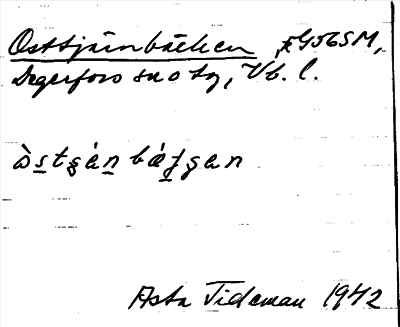 Osttjärnbäcken, F456SM,
Degerfors sn o tg, Vb. l.
òstgán báʃgan
Asta Tideman 1942